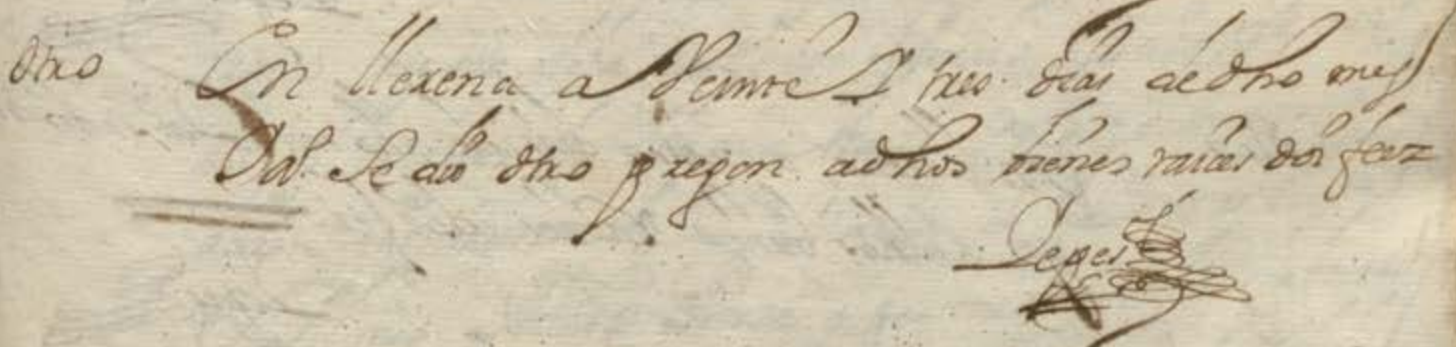 otro En llerena a Veinte Y tres dias de dho mes
Se dio otro pregon a dhos bienes raices doi fee
Yepes